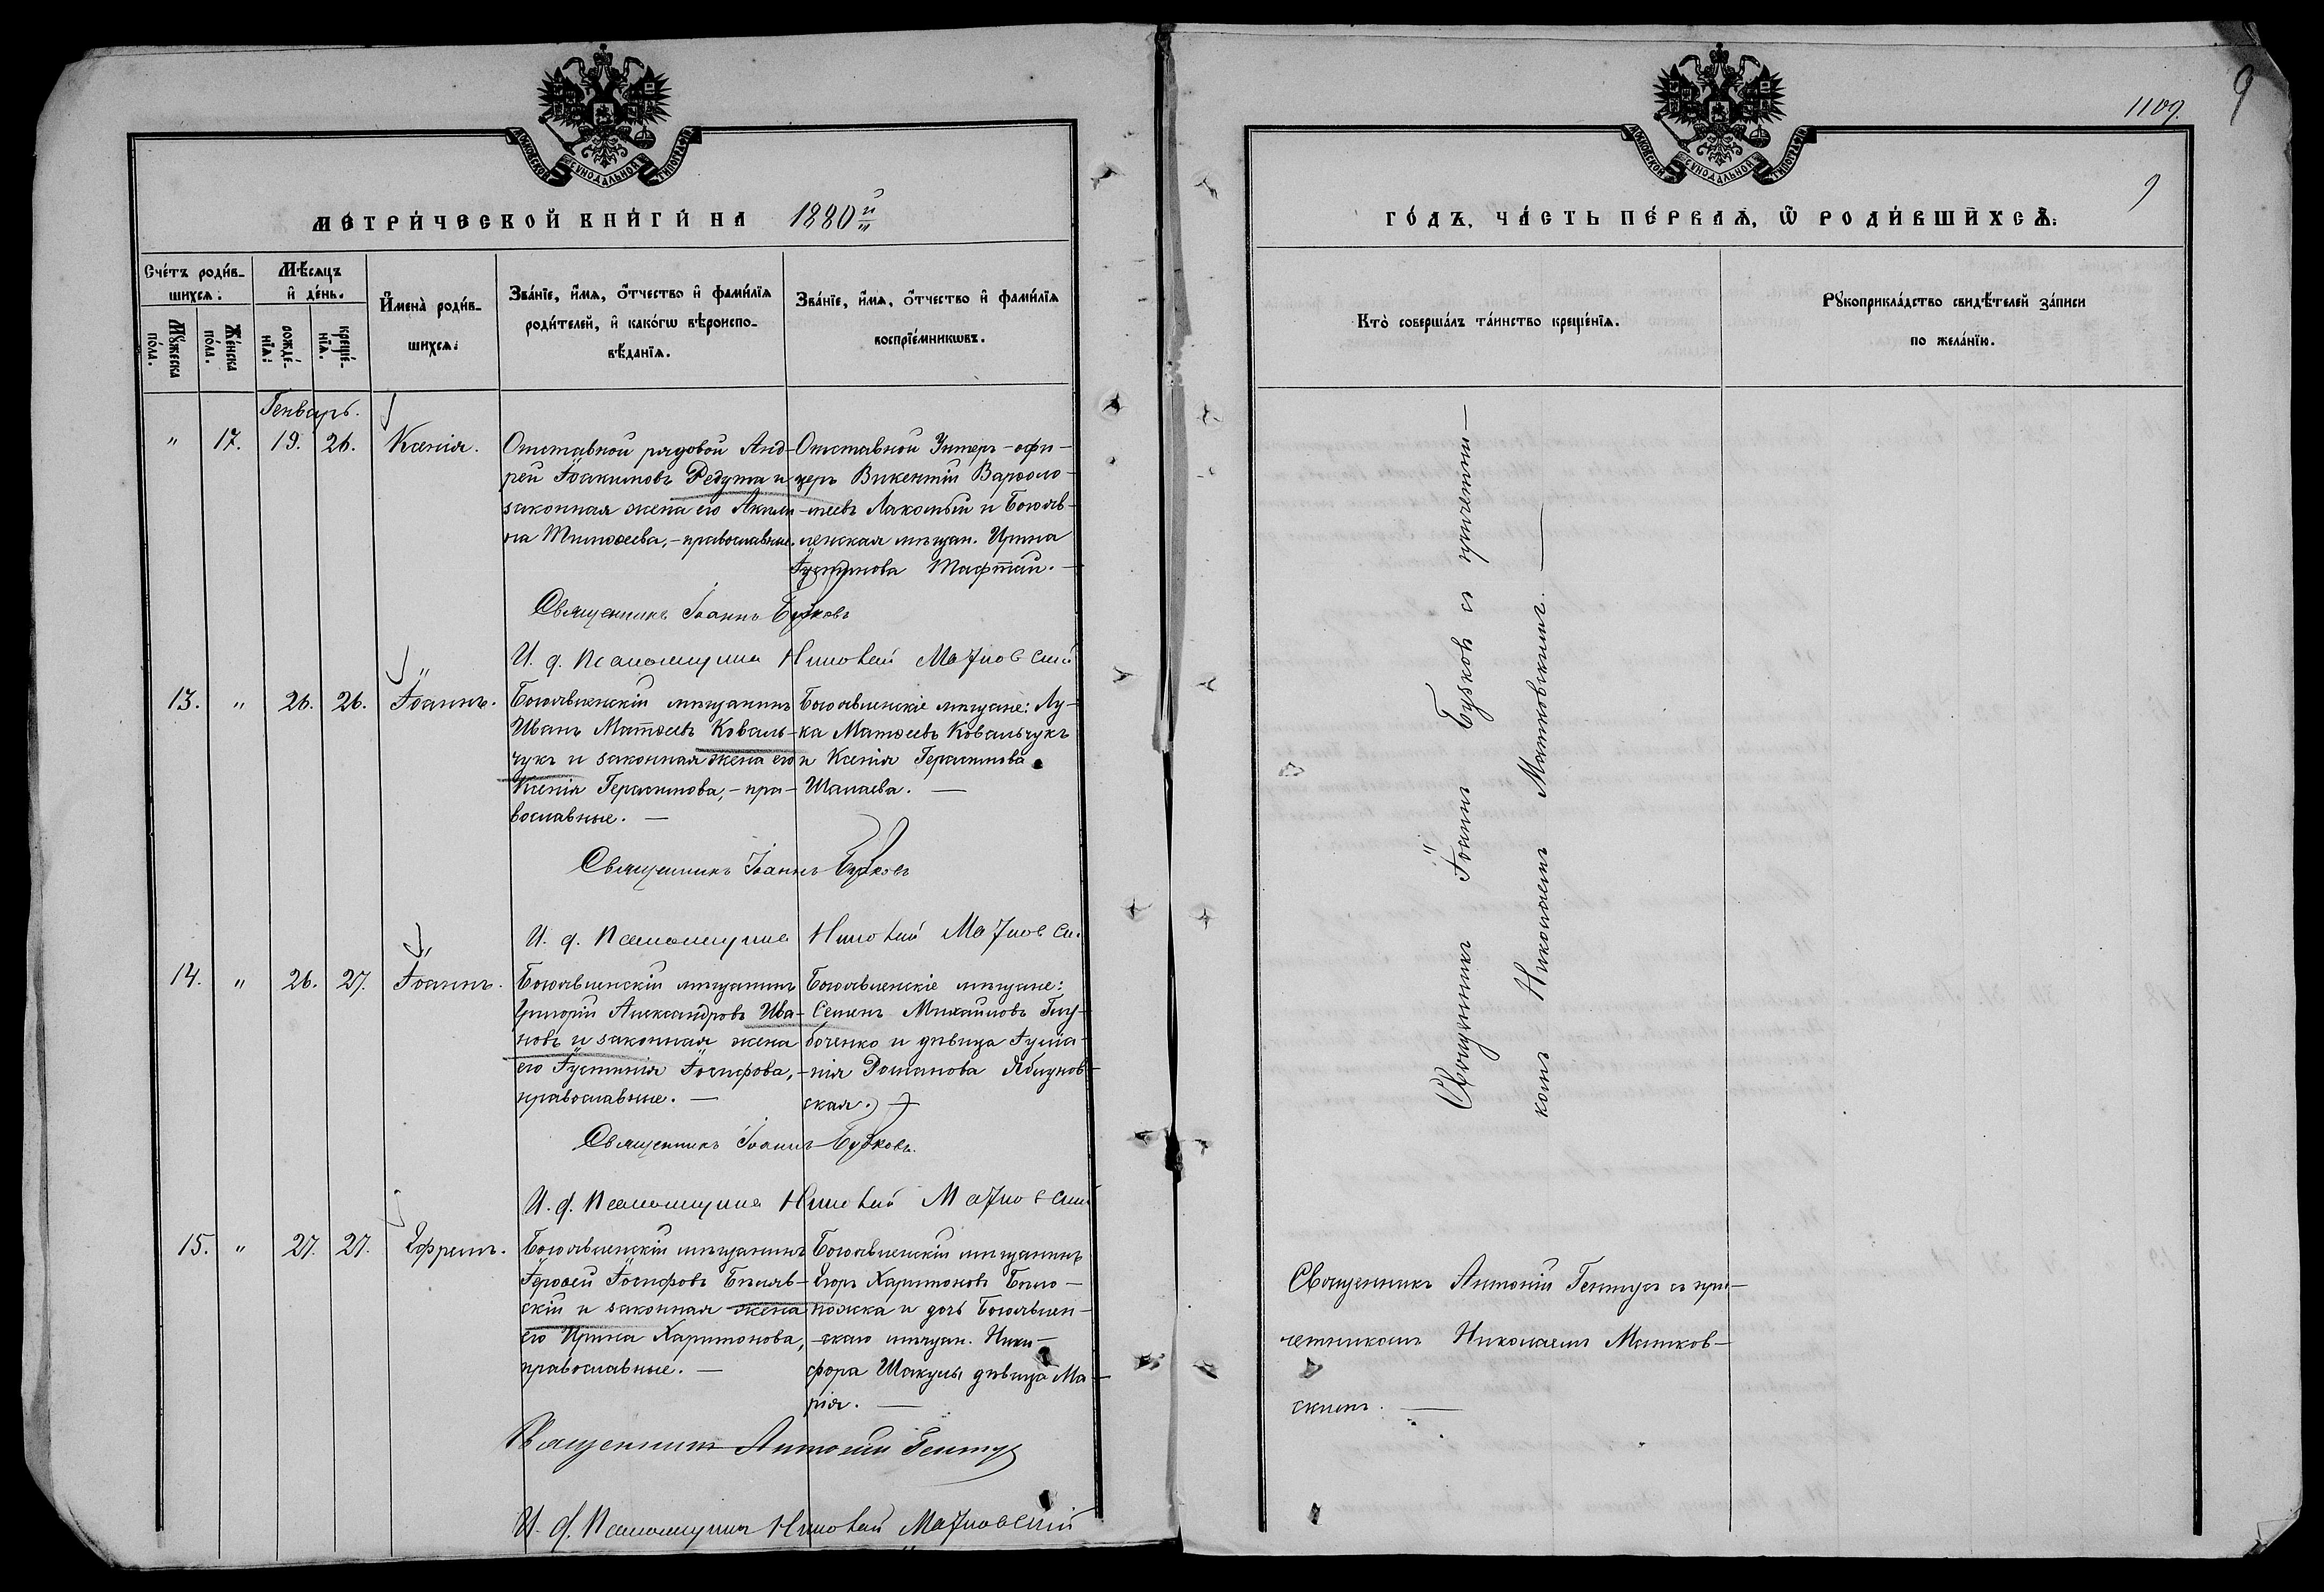 МОСКОВСКОЙ СѴНОДАЛЬНОЙ ТИПОГРАФІИ
МЕТРИ́ЧЕСКОЙ КНИ́ГИ НА 1880й
Сче́тъ роди́в-
шихся:
Мꙋ́жеска по́ла.
Же́нска по́ла.
Мѣ́сяцъ
и҆ де́нь.
рожде́-
нїѧ:
креще́-
нїѧ.
И҆мена̀ роди́в-
шихсѧ:
Зва́нїе, и҆́мѧ, ѻ҆́тчество и҆ фами́лїѧ
роди́телей, и҆ како́гѡ вѣроиспо-
вѣ́данїѧ.
Зва́нїе, и҆́мѧ, ѻ҆́тчество и҆ фами́лїѧ
воспрїе́мникѡвъ.
Генварь.
" 17. 19. 26. Ксенія.
Отставной рядовой Анд-
рей Іоакимовъ Редута и
законная жена его Акили-
на Тимоѳеева,- православные.
Отставной Унтеръ-офи-
церъ Викентій Варѳоло-
меевъ Лакомый и Богояв-
ленская мѣщан. Ирина
Іустинова Мафтай.
Священникъ Іоаннъ Бужковъ
И. д. Псаломщика Николай Матковскій
13. " 26. 26. Іоаннъ.
Богоявленскій мѣщанинъ
Иванъ Матѳеевъ Коваль-
чукъ и законная жена его
Ксенія Герасимова,- пра-
вославные.
Богоявленскіе мѣщане: Лу-
ка Матѳеевъ Ковальчукъ
и Ксенія Герасимова
Шапаева.
Священникъ Іоаннъ Бужковъ
И. д. Псаломщика Николай Матковск.
14. " 26. 27. Іоаннъ.
Богоявленскій мѣщанинъ
Григорій Александровъ Ива-
новъ и законная жена
его Іустинія Іосифова,-
православные.
Богоявленскіе мѣщане:
Семенъ Михайловъ Голу-
боченко и дѣвица Іуліа-
нія Романова Яблунов-
ская.
Священникъ Іоаннъ Бужковъ.
И. д. Псаломщика Николай Матковскій
15. " 27. 27. Ефремъ.
Богоявленскій мѣщанинъ
Іероѳей Іосифовъ Бѣляв-
скій и законная жена
его Ирина Харитонова,
православные.
Богоявленскій мѣщанинъ
Егоръ Харитоновъ Бѣло-
ножка и дочь Богоявлен-
скаго мѣщан. Ники-
фора Шакулы дѣвица Ма-
рія.
Священникъ Антоній Гентуъ
И. д. Псаломщика Николай Матковскій
1109.
9
МОСКОВСКОЙ СѴНОДАЛЬНОЙ ТИПОГРАФІИ
9
ГО́ДЪ, ЧА́СТЬ ПЕ́РВАѦ, Ѽ РОДИ́ВШИХСѦ:
Кто̀ соверша́лъ та́инство креще́нїѧ.
Рꙋкоприкла́дство свидѣ́телей за́писи
по жела́нїю.
Священникъ Іоаннъ Бужков съ причетни-
комъ Николаемъ Матковскимъ.
Священникъ Антоній Гентуъ съ при-
четникомъ Николаемъ Матков-
скимъ.